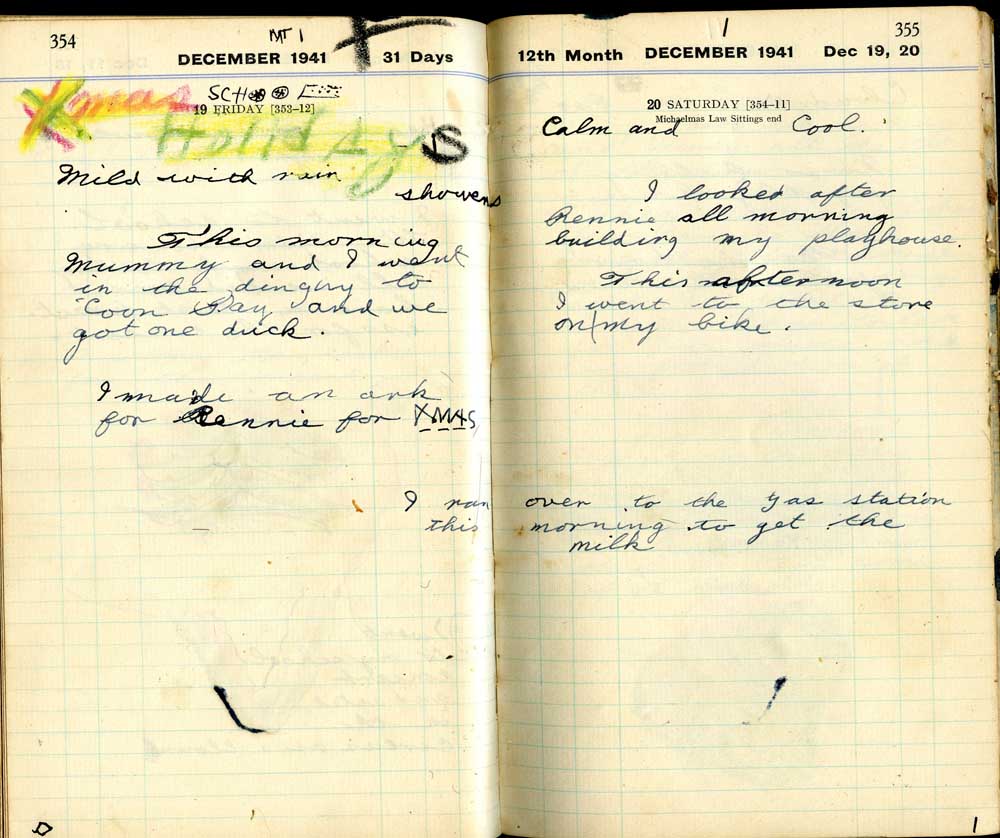 354
MT 1
DECEMBER 1941
31 Days
SCHOOL
19 FRIDAY [353-12]
Xmas
Holidays
Mild with rain
showers
This morning
Mummy and I went
in the dinghy to
'Coon Bay and we
got one duck.
I made an ark
for Rennie for XMAS
I ran over to the gas station
this morning to get the
milk
1
355
12th Month DECEMBER 1941 Dec 19, 20
20 SATURDAY [354-11]
Michaelmas Law Sittings end
Calm and Cool.
I looked after
Rennie all morning
building my playhouse.
This afternoon
I went to the store
on my bike.
1